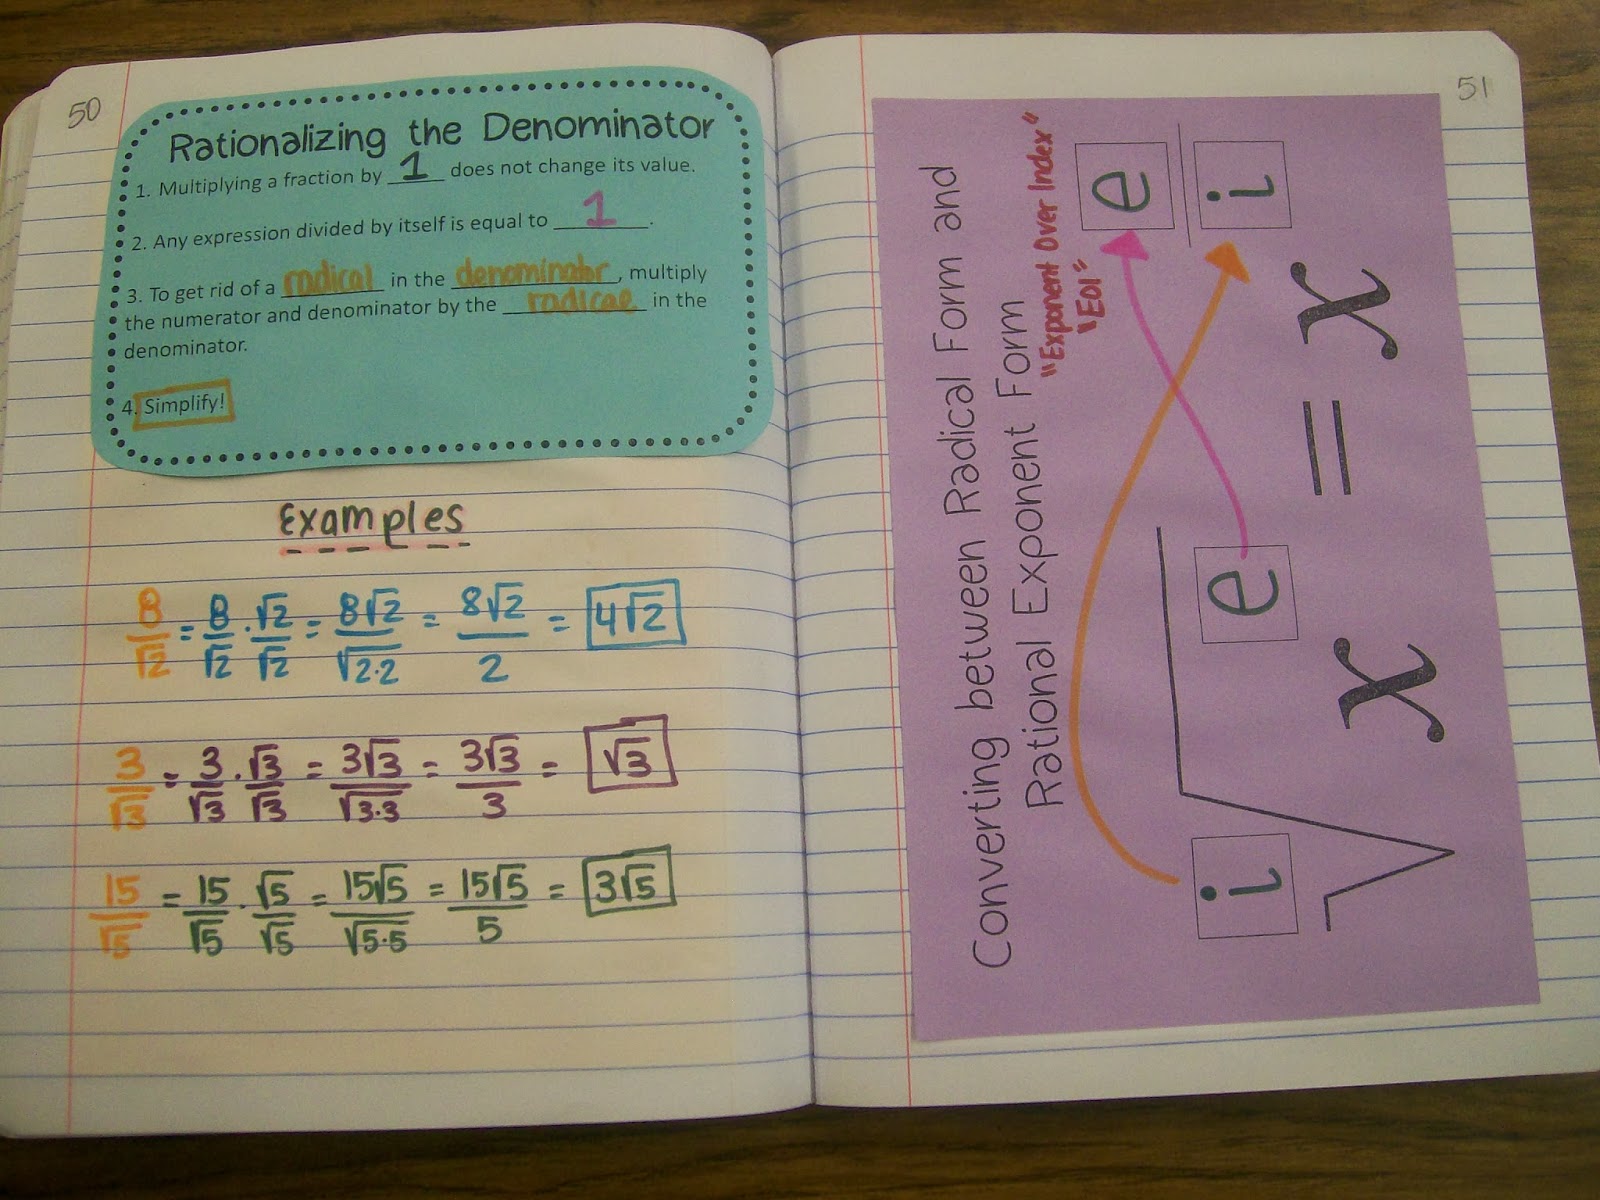 50
Rationalizing the Denominator
1. Multiplying a fraction by 1 does not change its value.
2. Any expression divided by itself is equal to 1.
3. To get rid of a radical in the denominatr, multiply
the numerator and denominator by the radical in the
denominator.
4. Simplify!
Examples
8/√2 = 8/√2 · √2/√2 = 8√2/√2·2 = 8√2/2 = 4√2
3/√3 = 3/√3 · √3/√3 = 3√3/√3·3 = 3√3/3 = √3
15/√5 = 15/√5 · √5/√5 = 15√5/√5·5 = 15√5/5 = 3√5
51
Converting between Radical Form and
Rational Exponent Form
"Exponent Over Index"
"EOI"
i√x e = x e/i